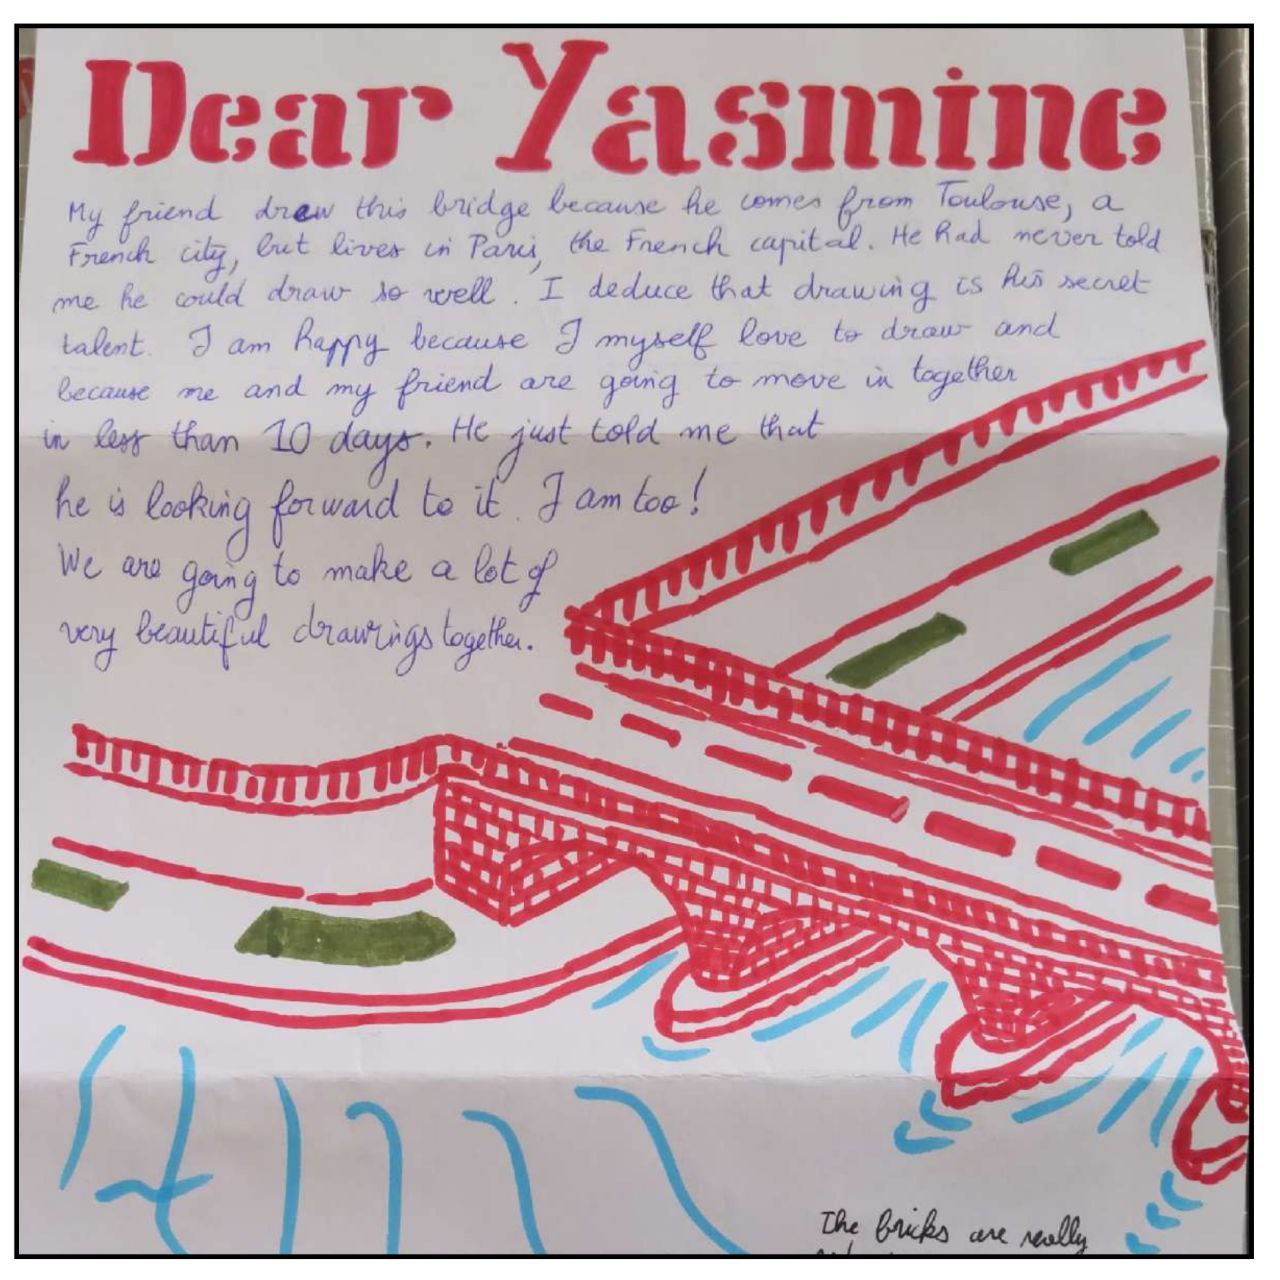 Dear Yasmine
My friend drew this bridge because he comes from Toulouse, a
French city, but lives in Paris, the French capital. He had never told
me he could draw so well. I deduce that drawing is his secret
talent. I am happy because I myself love to draw and
because me and my friend are going to move in together
in less than 10 days. He just told me that
he is looking forward to it. I am too!
We are going to make a lot of
very beautiful drawings together.
The bricks are really